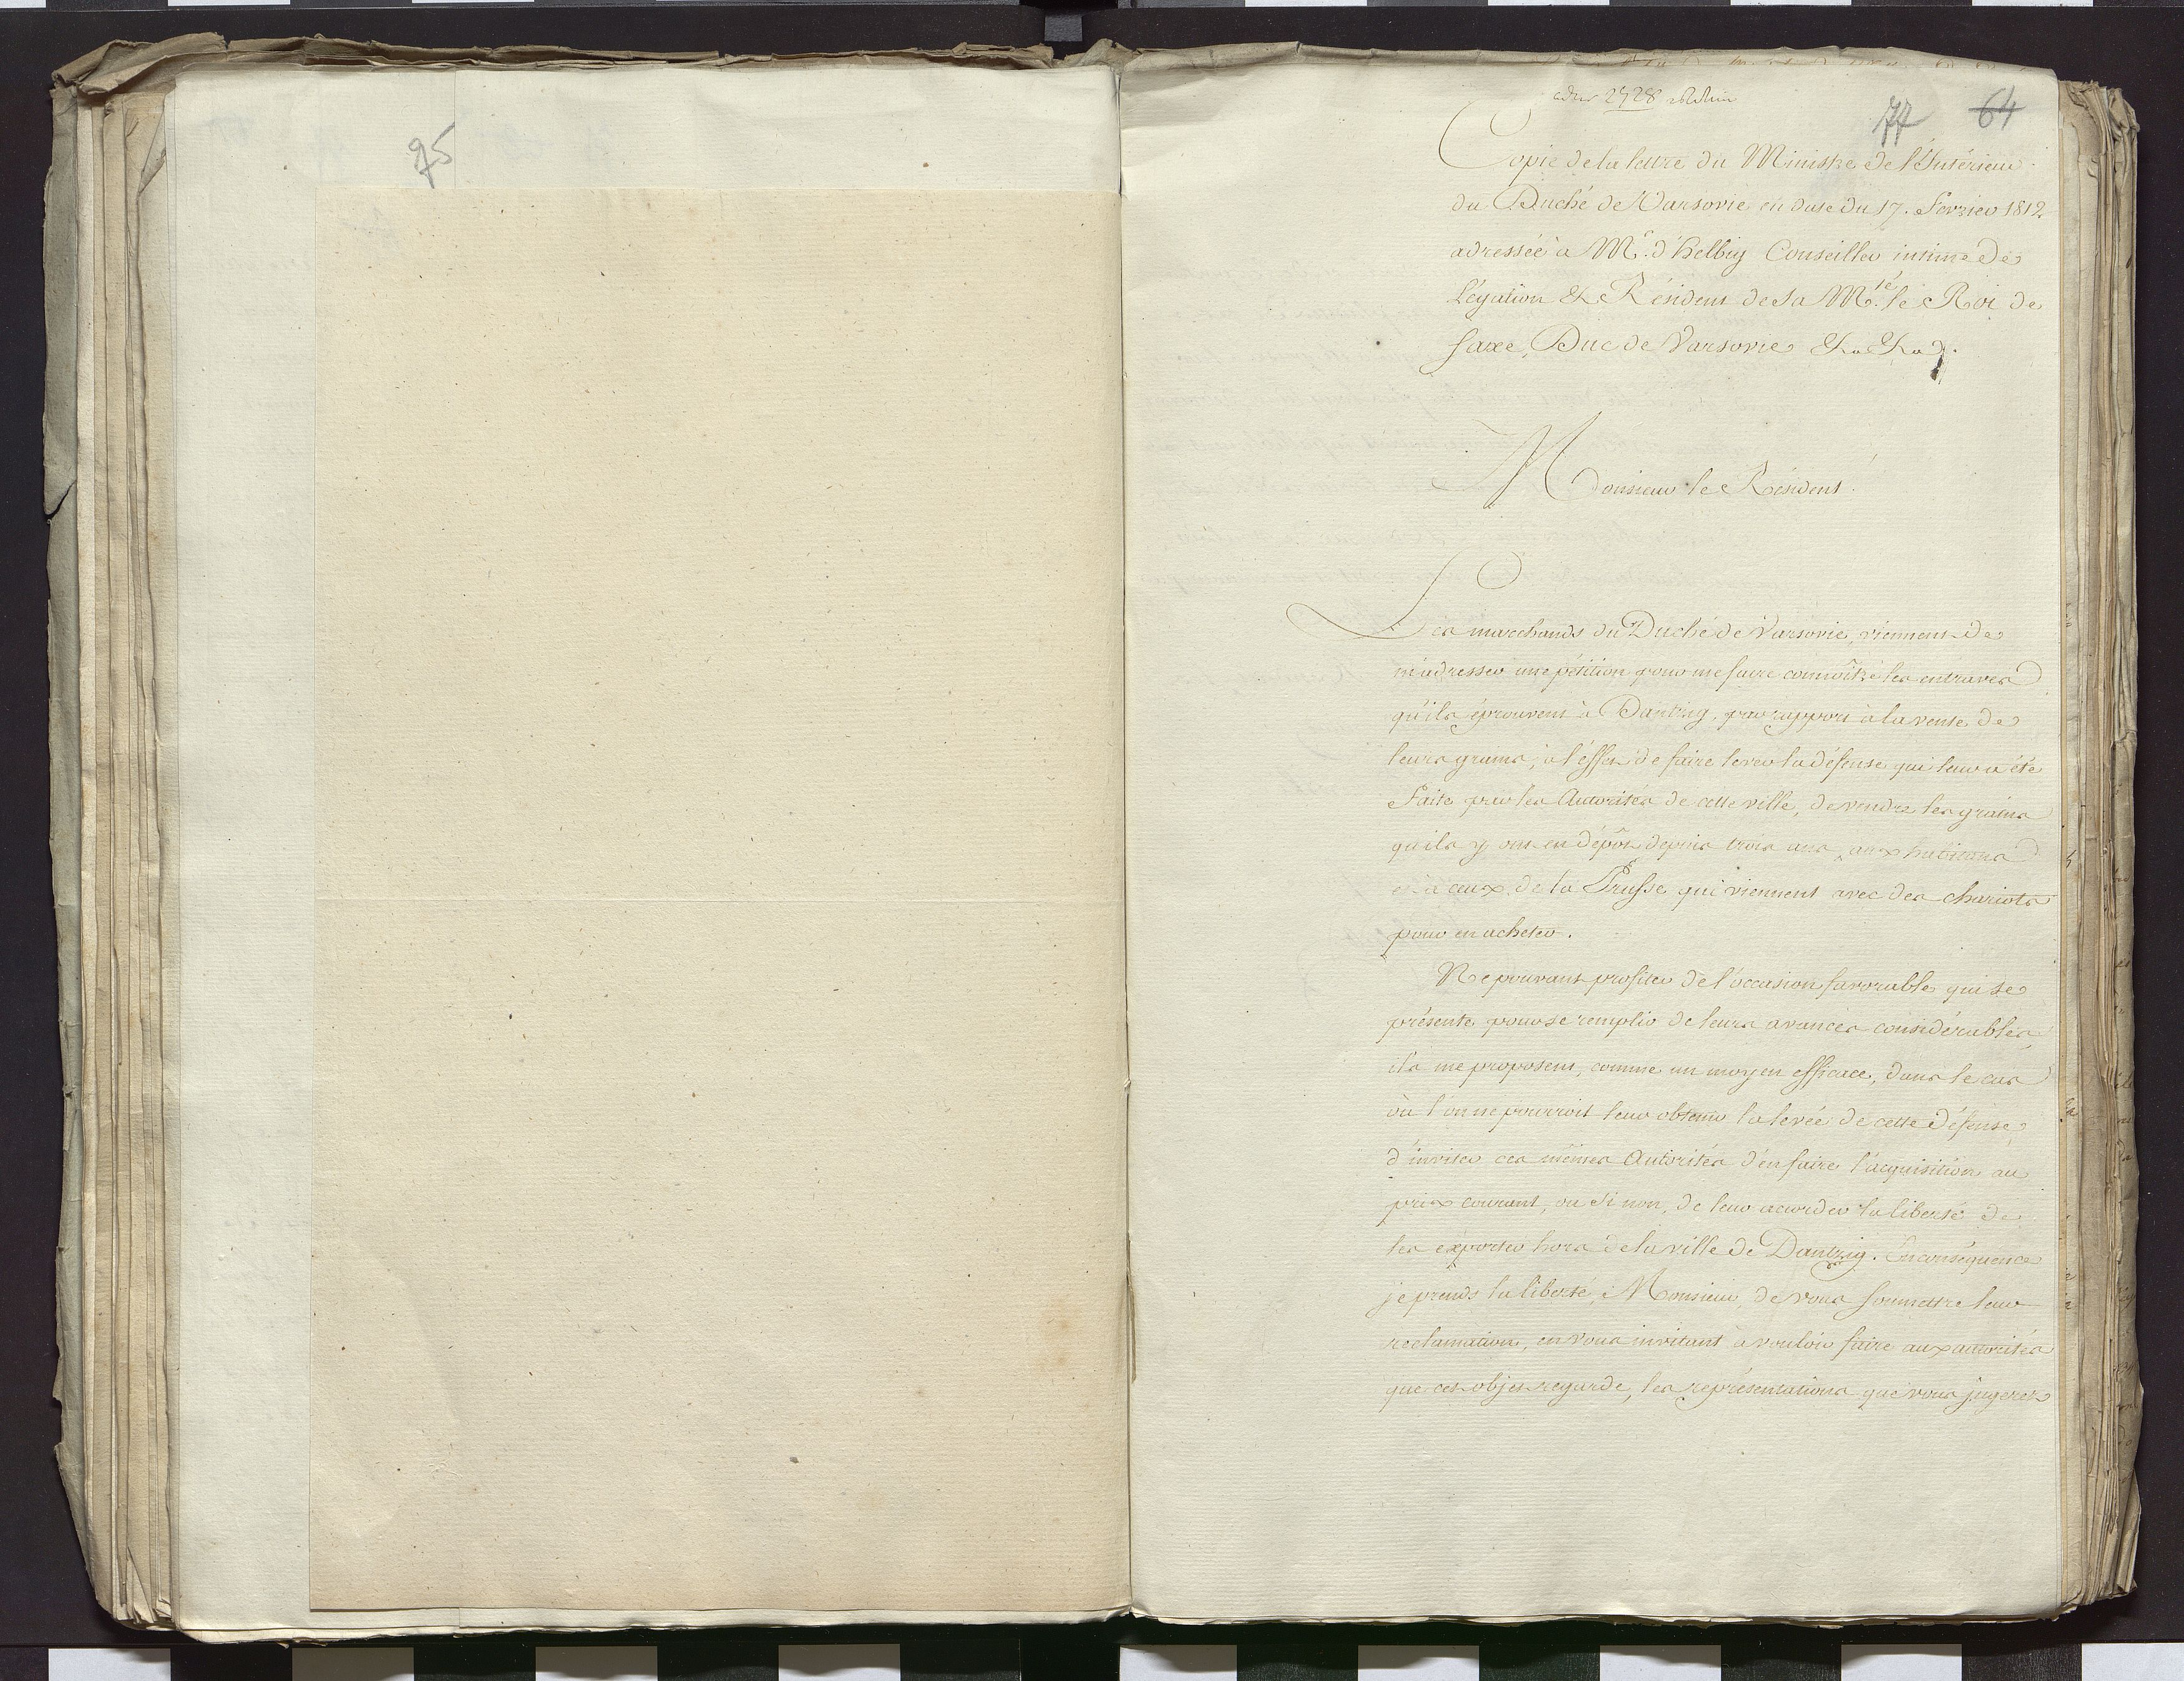 75
2728
77 64
Copie de la lettre du Ministre de l'Intérieur
du Duché de Varsovie en date du 17. Fevrier 1812
adressée à Mr. d'Helbig Conseiller intime de
Légation & Résident de Sa Mté. le Roi de
Saxe, Duc de Varsovie &a &a &a.
Monsieur le Résident!
Les marchands du Duché de Varsovie, viennent de
m'adresser une pétition pour me faire connoître les entraves
qu'ils éprouvent à Dantzig, par rapport à la vente de
leurs grains, à l'effet de faire lever la défense qui leur a été
faite par les Autorités de cette ville, de vendre les grains
qu'ils y ont en dépôt depuis trois ans, aux habitans
et à ceux de la Prusse qui viennent avec des chariots
pour en acheter.
Ne pouvant profiter de l'occasion favorable qui se
présente pour se remplir de leurs avances considérables,
ils me proposent, comme un moyen efficace, dans le cas
où l'on ne pourroit leur obtenir la levée de cette défense,
d'inviter ces mêmes Autorités d'en faire l'acquisition au
prix courant, ou si non, de leur accorder la liberté de
les exporter hors de la ville de Dantzig. En conséquence
je prends la liberté, Monsieur, de vous soumettre leur
reclamation, en vous invitant à vouloir faire aux autorités
que cet objet regarde, les représentations que vous jugerez